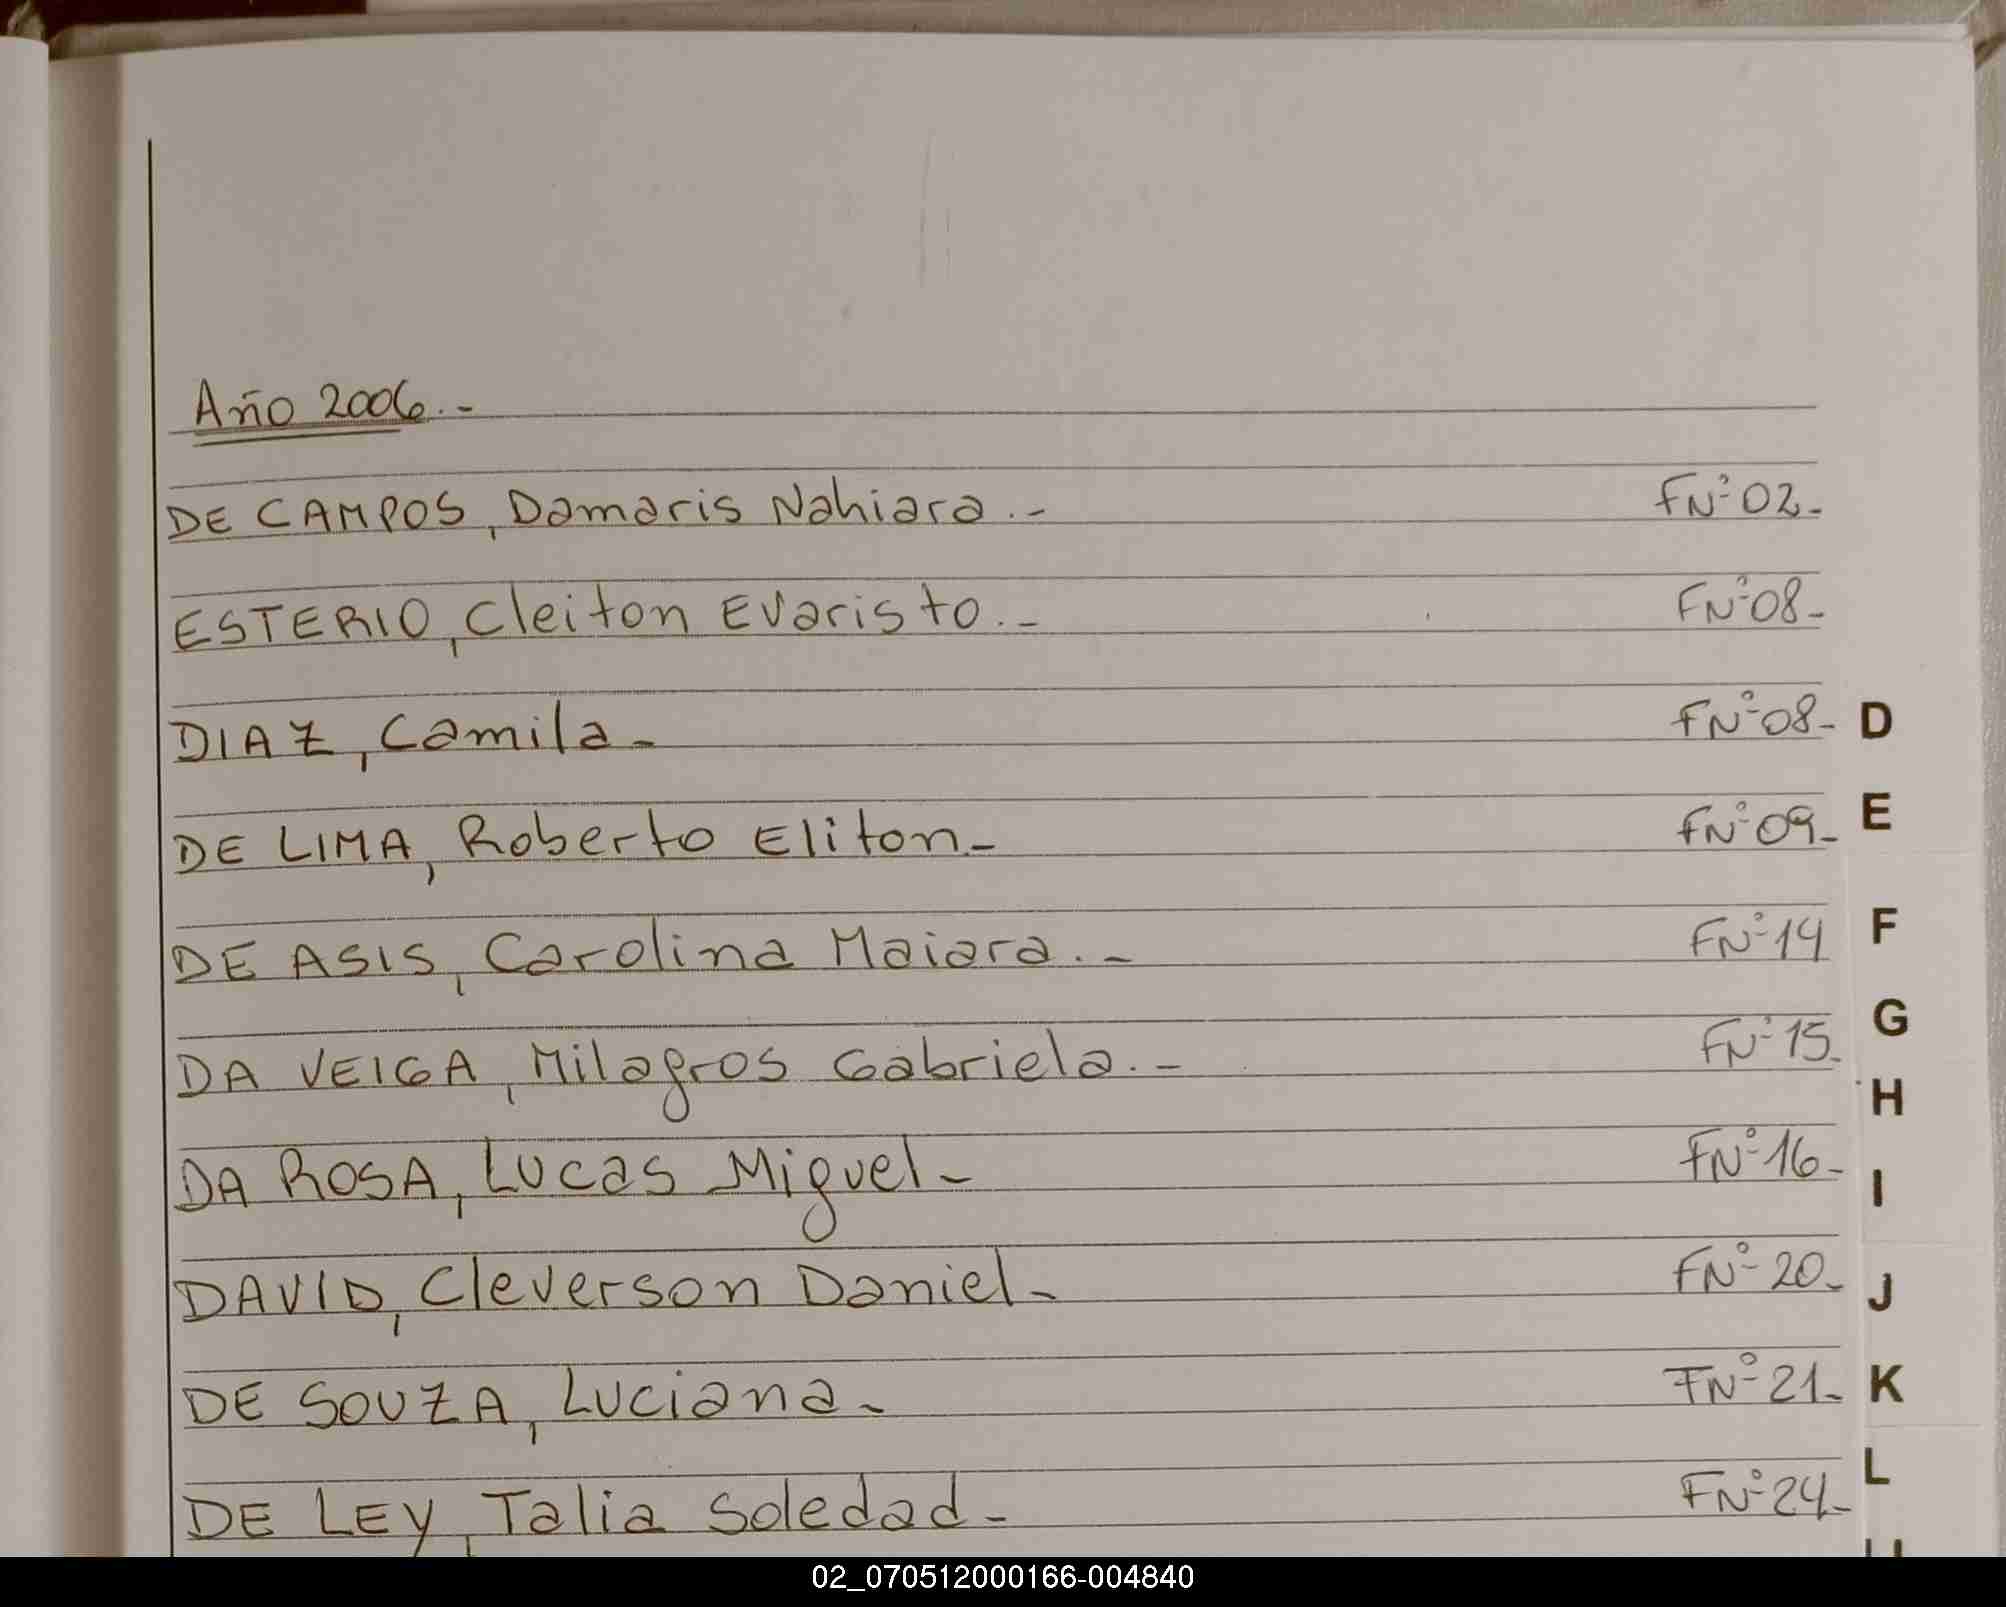 Año 2006.-
DE CAMPOS, Damaris Nahiara.- FNº02-
ESTERIO, Cleiton Evaristo.- FNº08-
DIAZ, Camila- FNº08- D
DE LIMA, Roberto Eliton- FNº09- E
DE ASIS, Carolina Maiara.- FNº14 F
G
DA VEIGA, Milagros Gabriela.- FNº15- H
DA ROSA, Lucas Miguel- FNº16- I
DAVID, Cleverson Daniel- FNº20- J
DE SOUZA, Luciana- FNº21- K
L
DE LEY, Talia Soledad- FNº24-
02_070512000166-004840